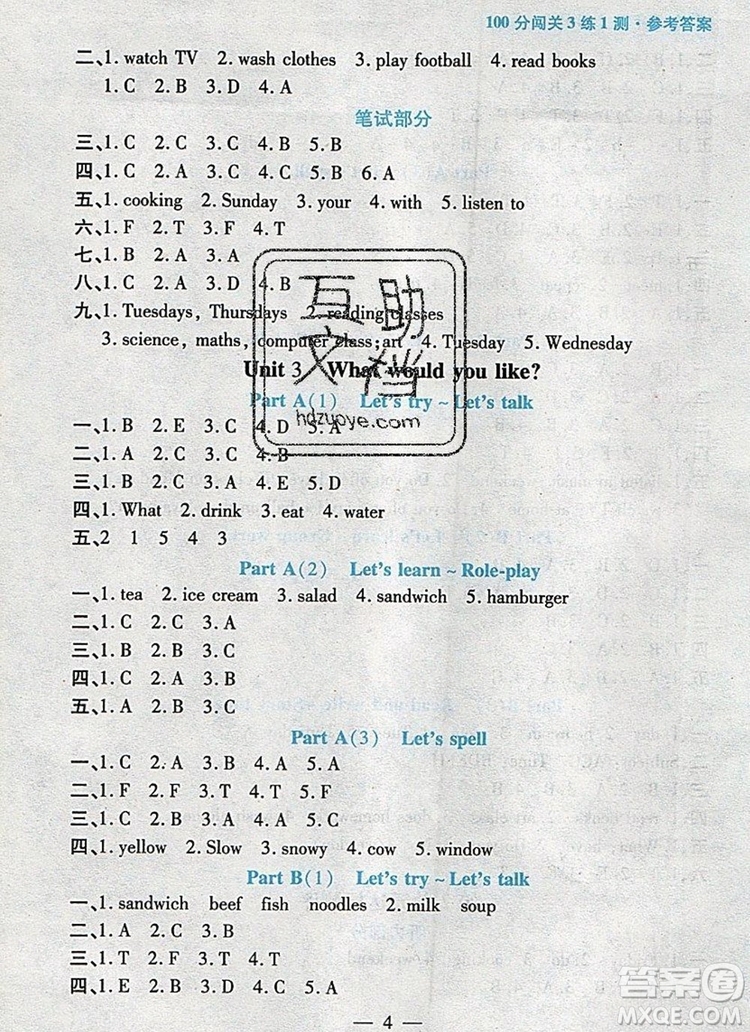 100分闯关3练1测·参考答案
二、1. watch TV 2. wash clothes 3. play football 4. read books
1. C 2. B 3. D 4. A
笔试部分
三、1. C 2. C 3. C 4. B 5. B
四、1. C 2. A 3. C 4. B 5. B 6. A
五、1. cooking 2. Sunday 3. your 4. with 5. listen to
六、1. F 2. T 3. F 4. T
七、1. B 2. A 3. A
八、1. C 2. A 3. D 4. B
九、1. Tuesdays, Thursdays 2. reading classes
3. science, maths, computer class; art 4. Tuesday 5. Wednesday
Unit 3 What would you like?
Part A(1) Let's try ~ Let's talk
一、1. B 2. E 3. C 4. D 5. A
二、1. A 2. C 3. C 4. B
三、1. B 2. C 3. A 4. E 5. D
四、1. What 2. drink 3. eat 4. water
五、2 1 5 4 3
Part A(2) Let's learn ~ Role-play
一、1. tea 2. ice cream 3. salad 4. sandwich 5. hamburger
二、1. C 2. C 3. A
三、1. C 2. B 3. C
四、1. A 2. C 3. B
五、1. A 2. B 3. C
Part A(3) Let's spell
一、1. C 2. A 3. B 4. A 5. A
二、1. F 2. F 3. T 4. T 5. F
三、1. B 2. C 3. A 4. A 5. C
四、1. yellow 2. Slow 3. snowy 4. cow 5. window
Part B(1) Let's try ~ Let's talk
一、1. sandwich beef fish noodles 2. milk soup
二、1. A 2. C 3. B
三、1. T 2. F 3. T 4. T
四、1. E 2. B 3. D 4. A 5. C
— 4 —
互助
文档
hdzuoye.com
答案圈
MXQE.COM